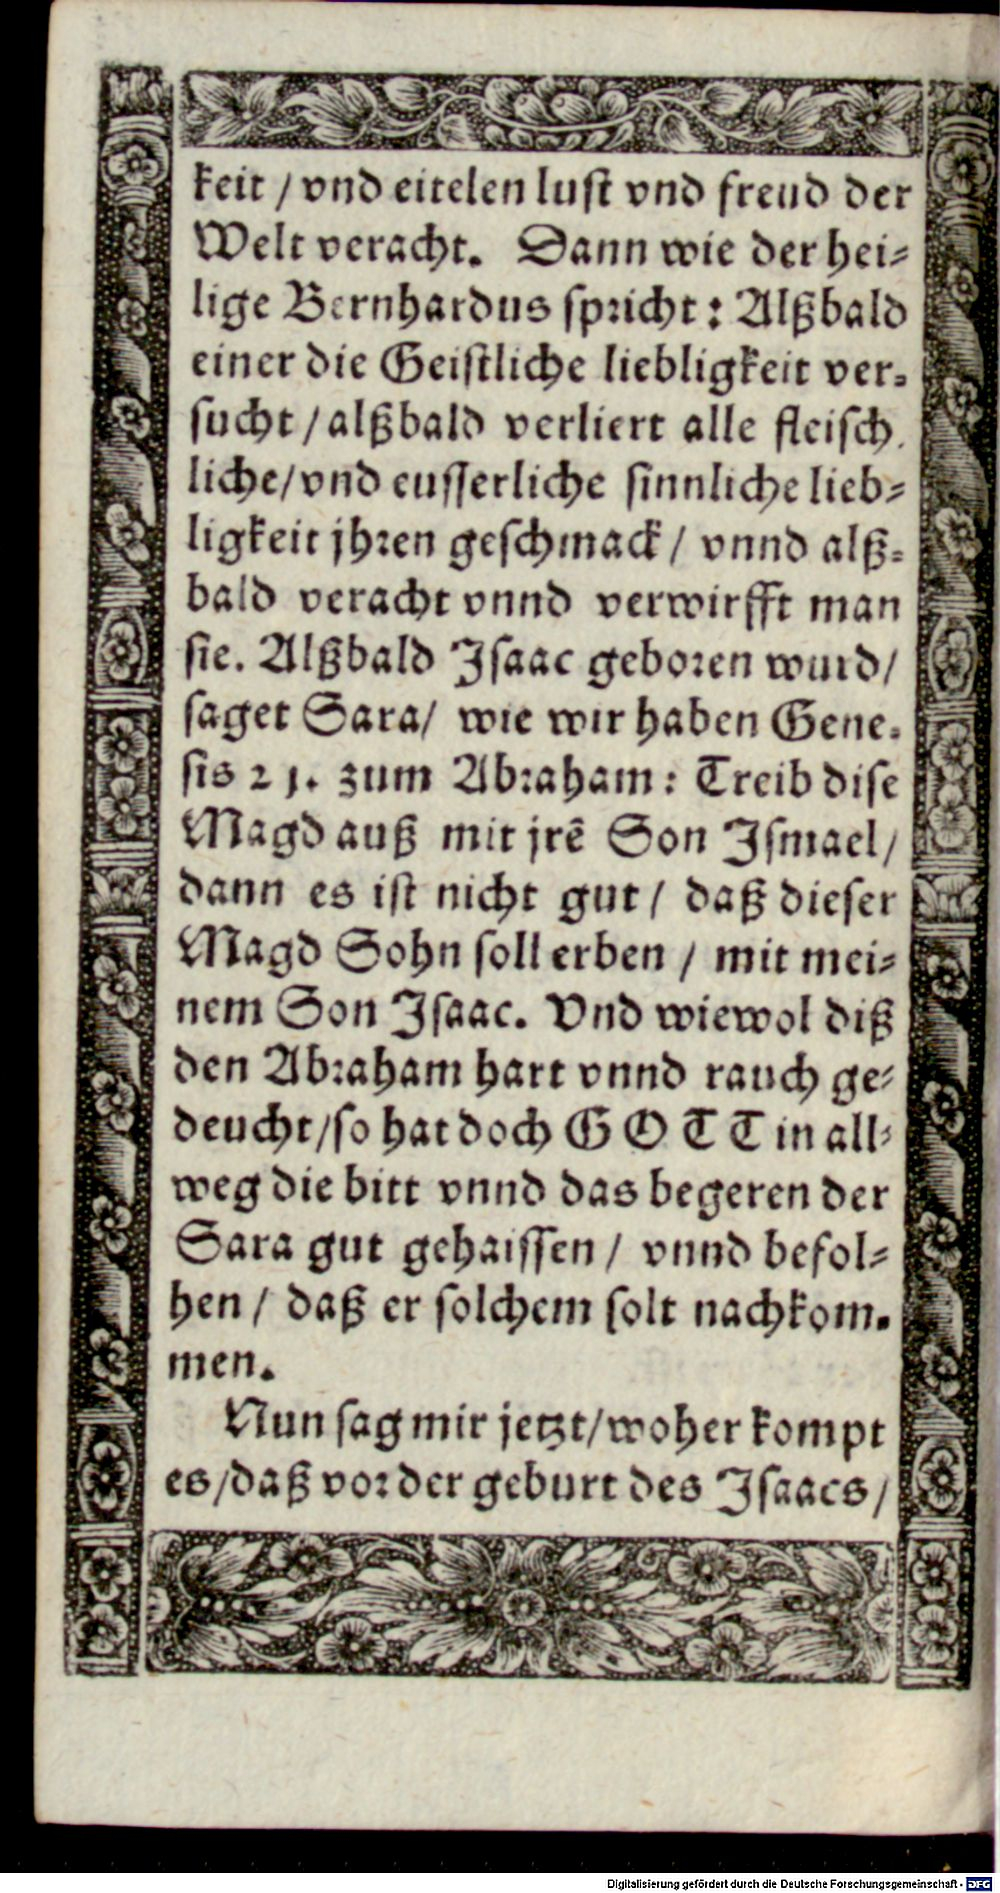 keit / vnd eitelen lust vnd freud der
Welt veracht. Dann wie der hei-
lige Bernhardus spricht: Alßbald
einer die Geistliche liebligkeit ver-
sucht / alßbald verliert alle fleisch
liche/vnd eusserliche sinnliche lieb-
ligkeit jhren geschmack / vnnd alß-
bald veracht vnnd verwirfft man
sie. Alßbald Isaac geboren wurd/
saget Sara/ wie wir haben Gene-
sis 21. zum Abraham: Treib dise
Magd auß mit jrē Son Ismael/
dann es ist nicht gut / daß dieser
Magd Sohn soll erben / mit mei-
nem Son Isaac. Vnd wiewol diß
den Abraham hart vnnd rauch ge-
deucht/so hat doch GOTT in all-
weg die bitt vnnd das begeren der
Sara gut gehaissen / vnnd befol-
hen / daß er solchem solt nachkom-
men.
Nun sag mir jetzt/woher kompt
es/daß vor der geburt des Isaacs/
Digitalisierung gefördert durch die Deutsche Forschungsgemeinschaft - DFG